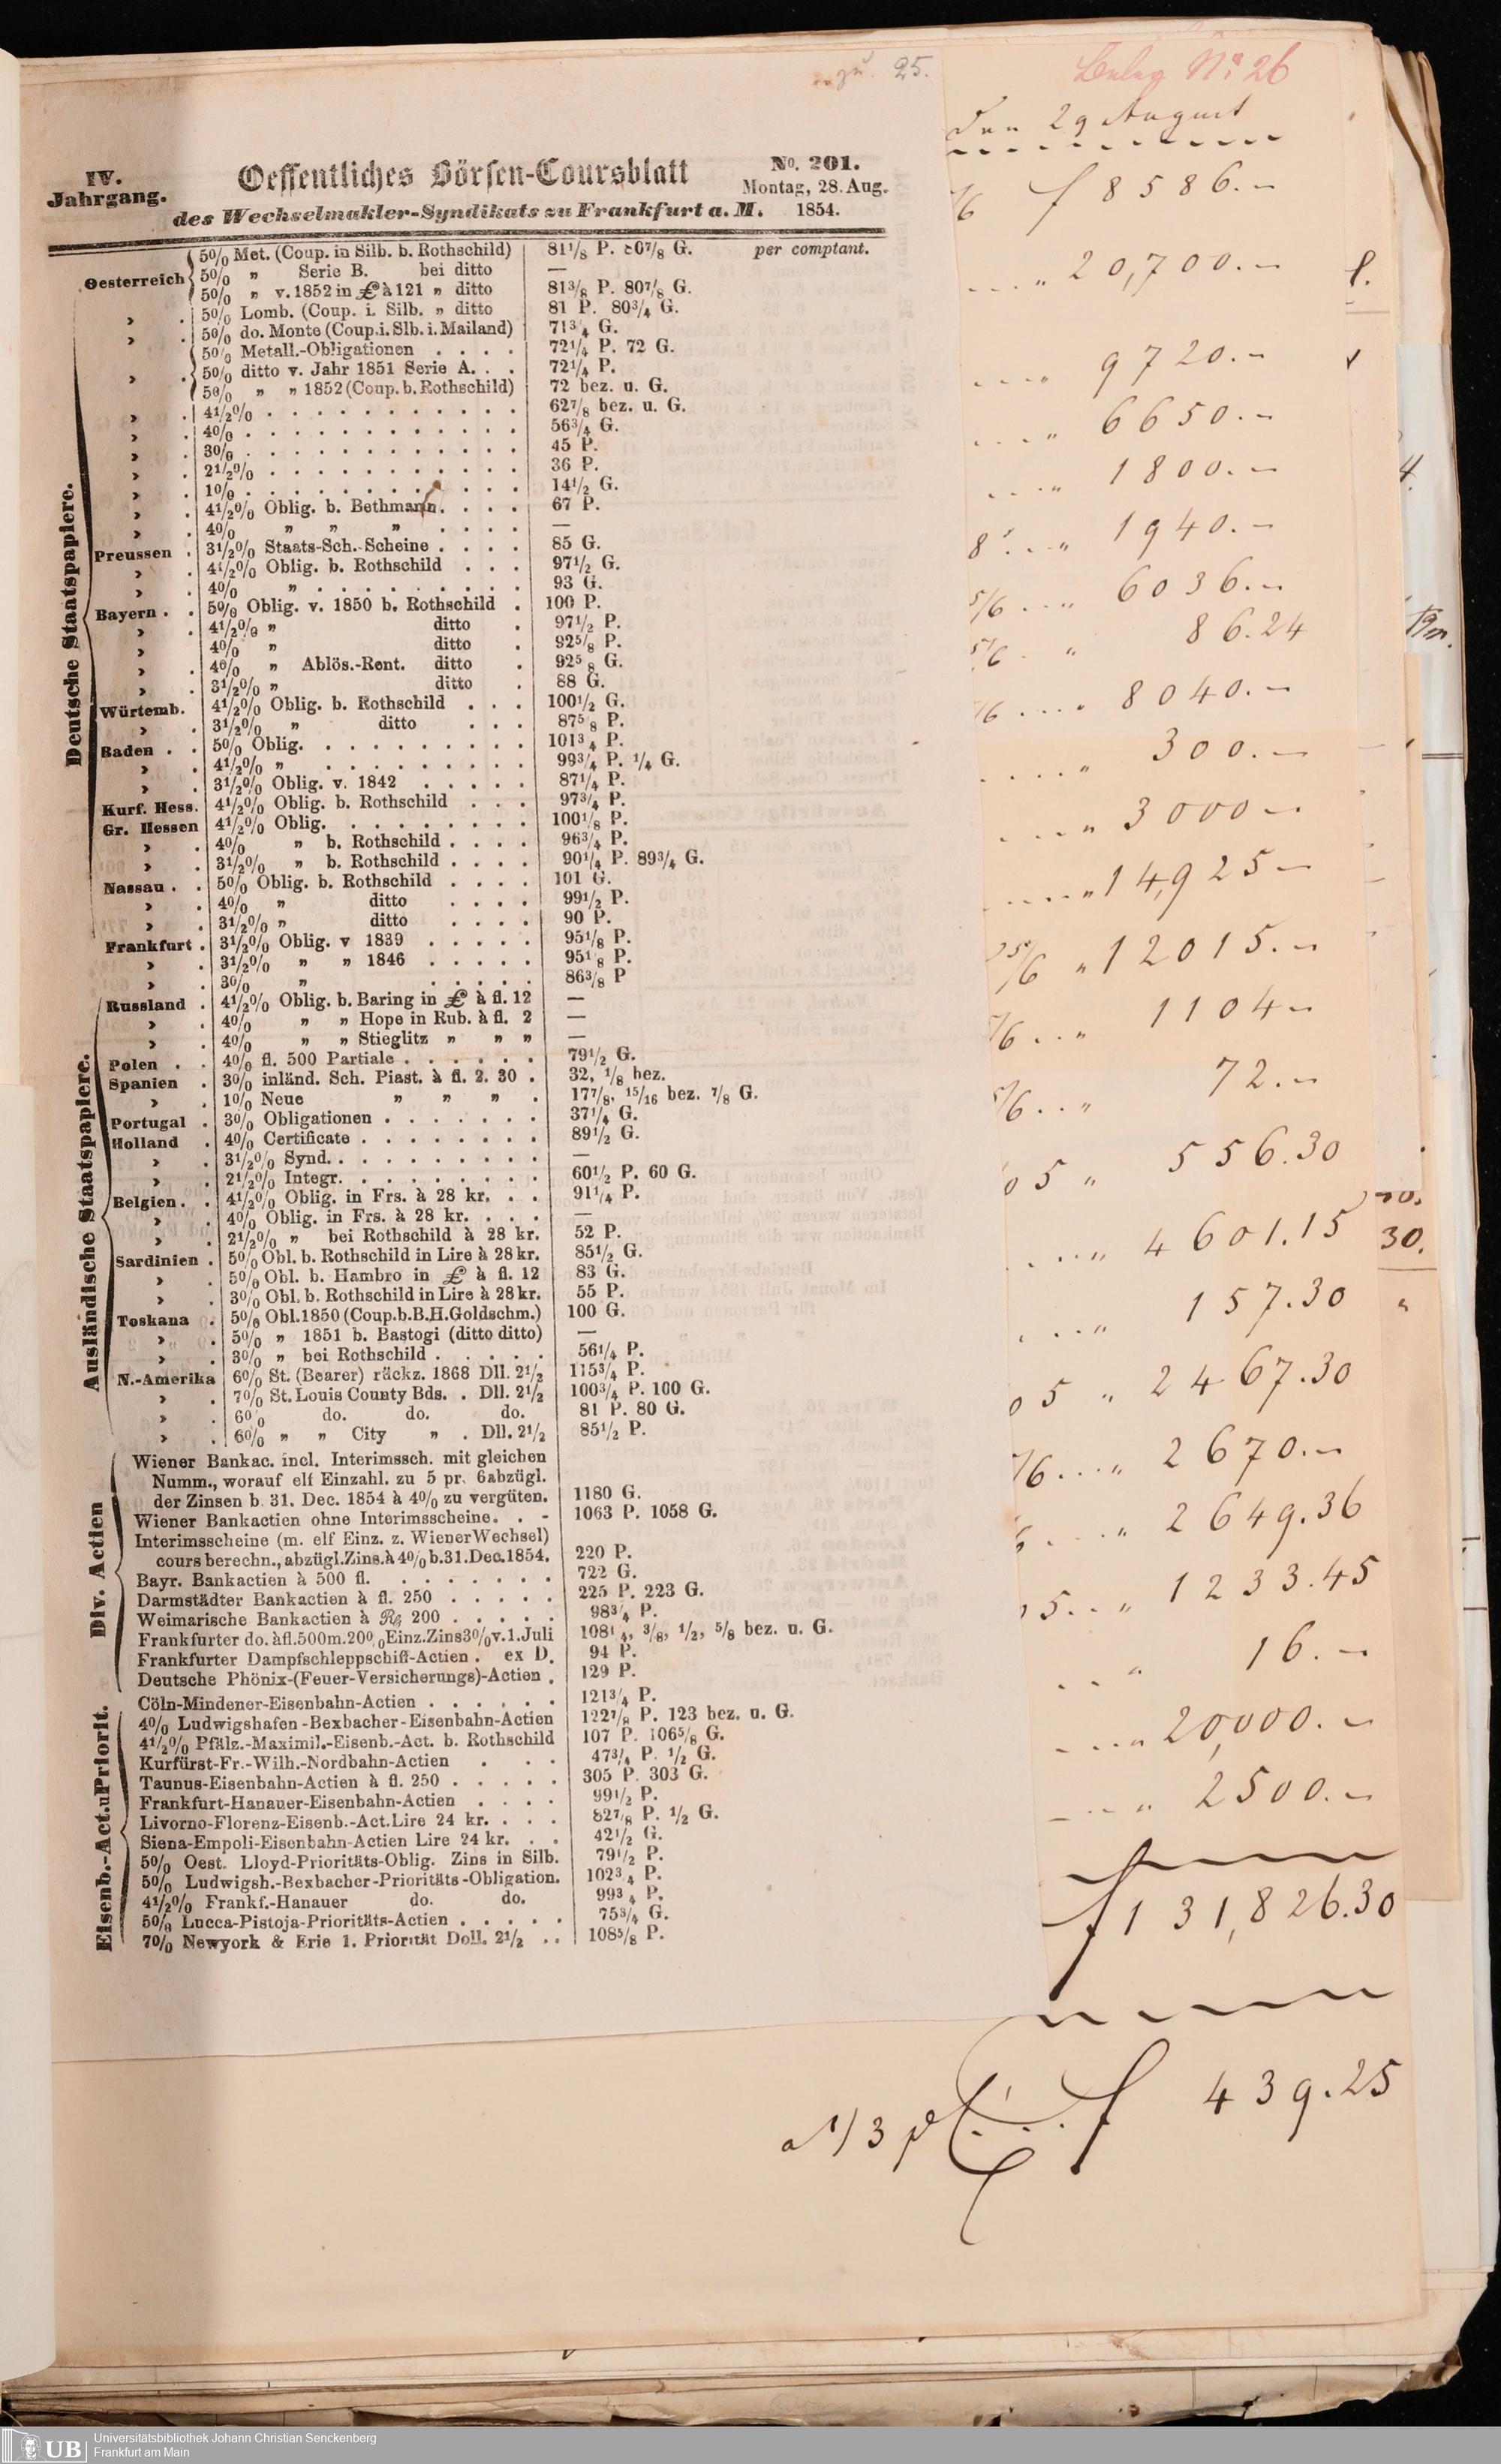 zu. 25.
IV.
Jahrgang.
Oeffentliches Börsen-Coursblatt
des Wechselmakler-Syndikats zu Frankfurt a. M.
No. 201.
Montag, 28. Aug.
1854.
Deutsche Staatspapiere.
Oesterreich 5% Met. (Coup. in Silb. b. Rothschild) 81 1/8 P. 80 7/8 G. per comptant.
5% „ Serie B. bei ditto —
5% „ v. 1852 in £ à 121 „ ditto 81 3/8 P. 80 7/8 G.
› . 5% Lomb. (Coup. i. Silb. „ ditto 81 P. 80 3/4 G.
› . 5% do. Monte (Coup. i. Slb. i. Mailand) 71 3/4 G.
5% Metall.-Obligationen . . . . 72 1/4 P. 72 G.
› . 5% ditto v. Jahr 1851 Serie A. . . 72 1/4 P.
5% „ „ 1852 (Coup. b. Rothschild) 72 bez. u. G.
› . 4 1/2% . . . . 62 7/8 bez. u. G.
› . 4% . . . . 56 3/4 G.
› . 3% . . . . 45 P.
› . 2 1/2% . . . . 36 P.
› . 1% . . . . 14 1/2 G.
› . 4 1/2% Oblig. b. Bethmann . . . . 67 P.
› . 4% „ „ „ . . . . —
Preussen . 3 1/2% Staats-Sch.-Scheine . . . . 85 G.
› . 4 1/2% Oblig. b. Rothschild . . . 97 1/2 G.
› . 4% „ . . . . 93 G.
Bayern . . 5% Oblig. v. 1850 b. Rothschild . 100 P.
› . 4 1/2% „ ditto . 97 1/2 P.
› . 4% „ ditto . 92 5/8 P.
› . 4% „ Ablös.-Rent. ditto . 92 5/8 G.
› . 3 1/2% „ ditto . 88 G.
Würtemb. 4 1/2% Oblig. b. Rothschild . . . 100 1/2 G.
› . 3 1/2% „ ditto . . . 87 5/8 P.
Baden . . 5% Oblig. . . . . 101 3/4 P.
› . 4 1/2% „ . . . . 99 3/4 P. 1/4 G.
› . 3 1/2% Oblig. v. 1842 . . . . 87 1/4 P.
Kurf. Hess. 4 1/2% Oblig. b. Rothschild . . . 97 3/4 P.
Gr. Hessen 4 1/2% Oblig. . . . . 100 1/8 P.
› . 4% „ b. Rothschild . . . . 96 3/4 P.
› . 3 1/2% „ b. Rothschild . . . . 90 1/4 P. 89 3/4 G.
Nassau . . 5% Oblig. b. Rothschild . . . . 101 G.
› . 4% „ ditto . . . . 99 1/2 P.
› . 3 1/2% „ ditto . . . . 90 P.
Frankfurt . 3 1/2% Oblig. v 1839 . . . . . 95 1/8 P.
› . 3 1/2% „ „ 1846 . . . . . 95 1/8 P.
› . 3% „ . . . . . 86 3/8 P
Ausländische Staatspapiere.
Russland . 4 1/2% Oblig. b. Baring in £ à fl. 12 —
› . 4% „ „ Hope in Rub. à fl. 2 —
› . 4% „ „ Stieglitz „ „ „ —
Polen . . 4% fl. 500 Partiale . . . . . . 79 1/2 G.
Spanien . 3% inländ. Sch. Piast. à fl. 2. 30 . 32, 1/8 bez.
› . 1% Neue „ „ „ . 17 7/8, 15/16 bez. 7/8 G.
Portugal . 3% Obligationen . . . . . . . 37 1/4 G.
Holland . 4% Certificate . . . . . . . . 89 1/2 G.
› . 3 1/2% Synd. . . . . . . . . . —
› . 2 1/2% Integr. . . . . . . . . . 60 1/2 P. 60 G.
Belgien . . 4 1/2% Oblig. in Frs. à 28 kr. . . 91 1/4 P.
› . 4% Oblig. in Frs. à 28 kr. . . . —
› . 2 1/2% „ bei Rothschild à 28 kr. 52 P.
Sardinien . 5% Obl. b. Rothschild in Lire à 28 kr. 85 1/2 G.
› . 5% Obl. b. Hambro in £ à fl. 12 83 G.
› . 3% Obl. b. Rothschild in Lire à 28 kr. 55 P.
Toskana . 5% Obl. 1850 (Coup. b. B. H. Goldschm.) 100 G.
› . 5% „ 1851 b. Bastogi (ditto ditto) —
› . 3% „ bei Rothschild . . . . . 56 1/4 P.
N.-Amerika 6% St. (Bearer) räckz. 1868 Dll. 2 1/2 115 3/4 P.
› . 7% St. Louis County Bds. . Dll. 2 1/2 100 3/4 P. 100 G.
› . 6% do. do. do. 81 P. 80 G.
› . 6% „ „ City „ . Dll. 2 1/2 85 1/2 P.
Div. Actien
Wiener Bankac. incl. Interimssch. mit gleichen
Numm., worauf elf Einzahl. zu 5 pr. 6 abzügl.
der Zinsen b. 31. Dec. 1854 à 4% zu vergüten. 1180 G.
Wiener Bankactien ohne Interimsscheine. . - 1063 P. 1058 G.
Interimsscheine (m. elf Einz. z. Wiener Wechsel)
cours berechn., abzügl. Zins. à 4% b. 31. Dec. 1854. 220 P.
Bayr. Bankactien à 500 fl. . . . . . . . 722 G.
Darmstädter Bankactien à fl. 250 . . . . . 225 P. 223 G.
Weimarische Bankactien à Rthlr 200 . . . . . 98 3/4 P.
Frankfurter do. à fl. 500 m. 20% Einz. Zins 3% v. 1. Juli 108 1/4, 3/8, 1/2, 5/8 bez. u. G.
Frankfurter Dampfschleppschiff-Actien . ex D. 94 P.
Deutsche Phönix-(Feuer-Versicherungs)-Actien . 129 P.
Eisenb.-Act. u Priorit.
Cöln-Mindener-Eisenbahn-Actien . . . . . . 121 3/4 P.
4% Ludwigshafen-Bexbacher-Eisenbahn-Actien 122 7/8 P. 123 bez. u. G.
4 1/2% Pfälz.-Maximil.-Eisenb.-Act. b. Rothschild 107 P. 106 5/8 G.
Kurfürst-Fr.-Wilh.-Nordbahn-Actien . . . 47 3/4 P. 1/2 G.
Taunus-Eisenbahn-Actien à fl. 250 . . . . . 305 P. 303 G.
Frankfurt-Hanauer-Eisenbahn-Actien . . . . 99 1/2 P.
Livorno-Florenz-Eisenb.-Act. Lire 24 kr. . . . 82 7/8 P. 1/2 G.
Siena-Empoli-Eisenbahn-Actien Lire 24 kr. . . 42 1/2 G.
5% Oest. Lloyd-Prioritäts-Oblig. Zins in Silb. 79 1/2 P.
5% Ludwigsh.-Bexbacher-Prioritäts-Obligation. 102 3/4 P.
4 1/2% Frankf.-Hanauer do. do. 99 3/4 P.
5% Lucca-Pistoja-Prioritäts-Actien . . . . . 75 3/4 G.
7% Newyork & Erie 1. Priorität Doll. 2 1/2 . . 108 5/8 P.
Beleg No 26
Den 29 August
/6 f 8586.-
" 20,700.-
" 9720.-
" 6650.-
" 1800.-
8 " 1940.-
5/6 " 6036.-
5/6 " 86.24
/6 " 8040.-
" 300.-
" 3000-
" 14,925-
5/6 " 12015.-
/6 " 1104-
5/6 " 72.-
05 " 556.30
" 4601.15
" 157.30
05 " 2467.30
/6 " 2670.-
" 2649.36
5 " 1233.45
" 16.-
" 20,000.-
" 2500.-
f 131,826.30
a 1/3 f 439.25
30.
UB
Universitätsbibliothek Johann Christian Senckenberg
Frankfurt am Main